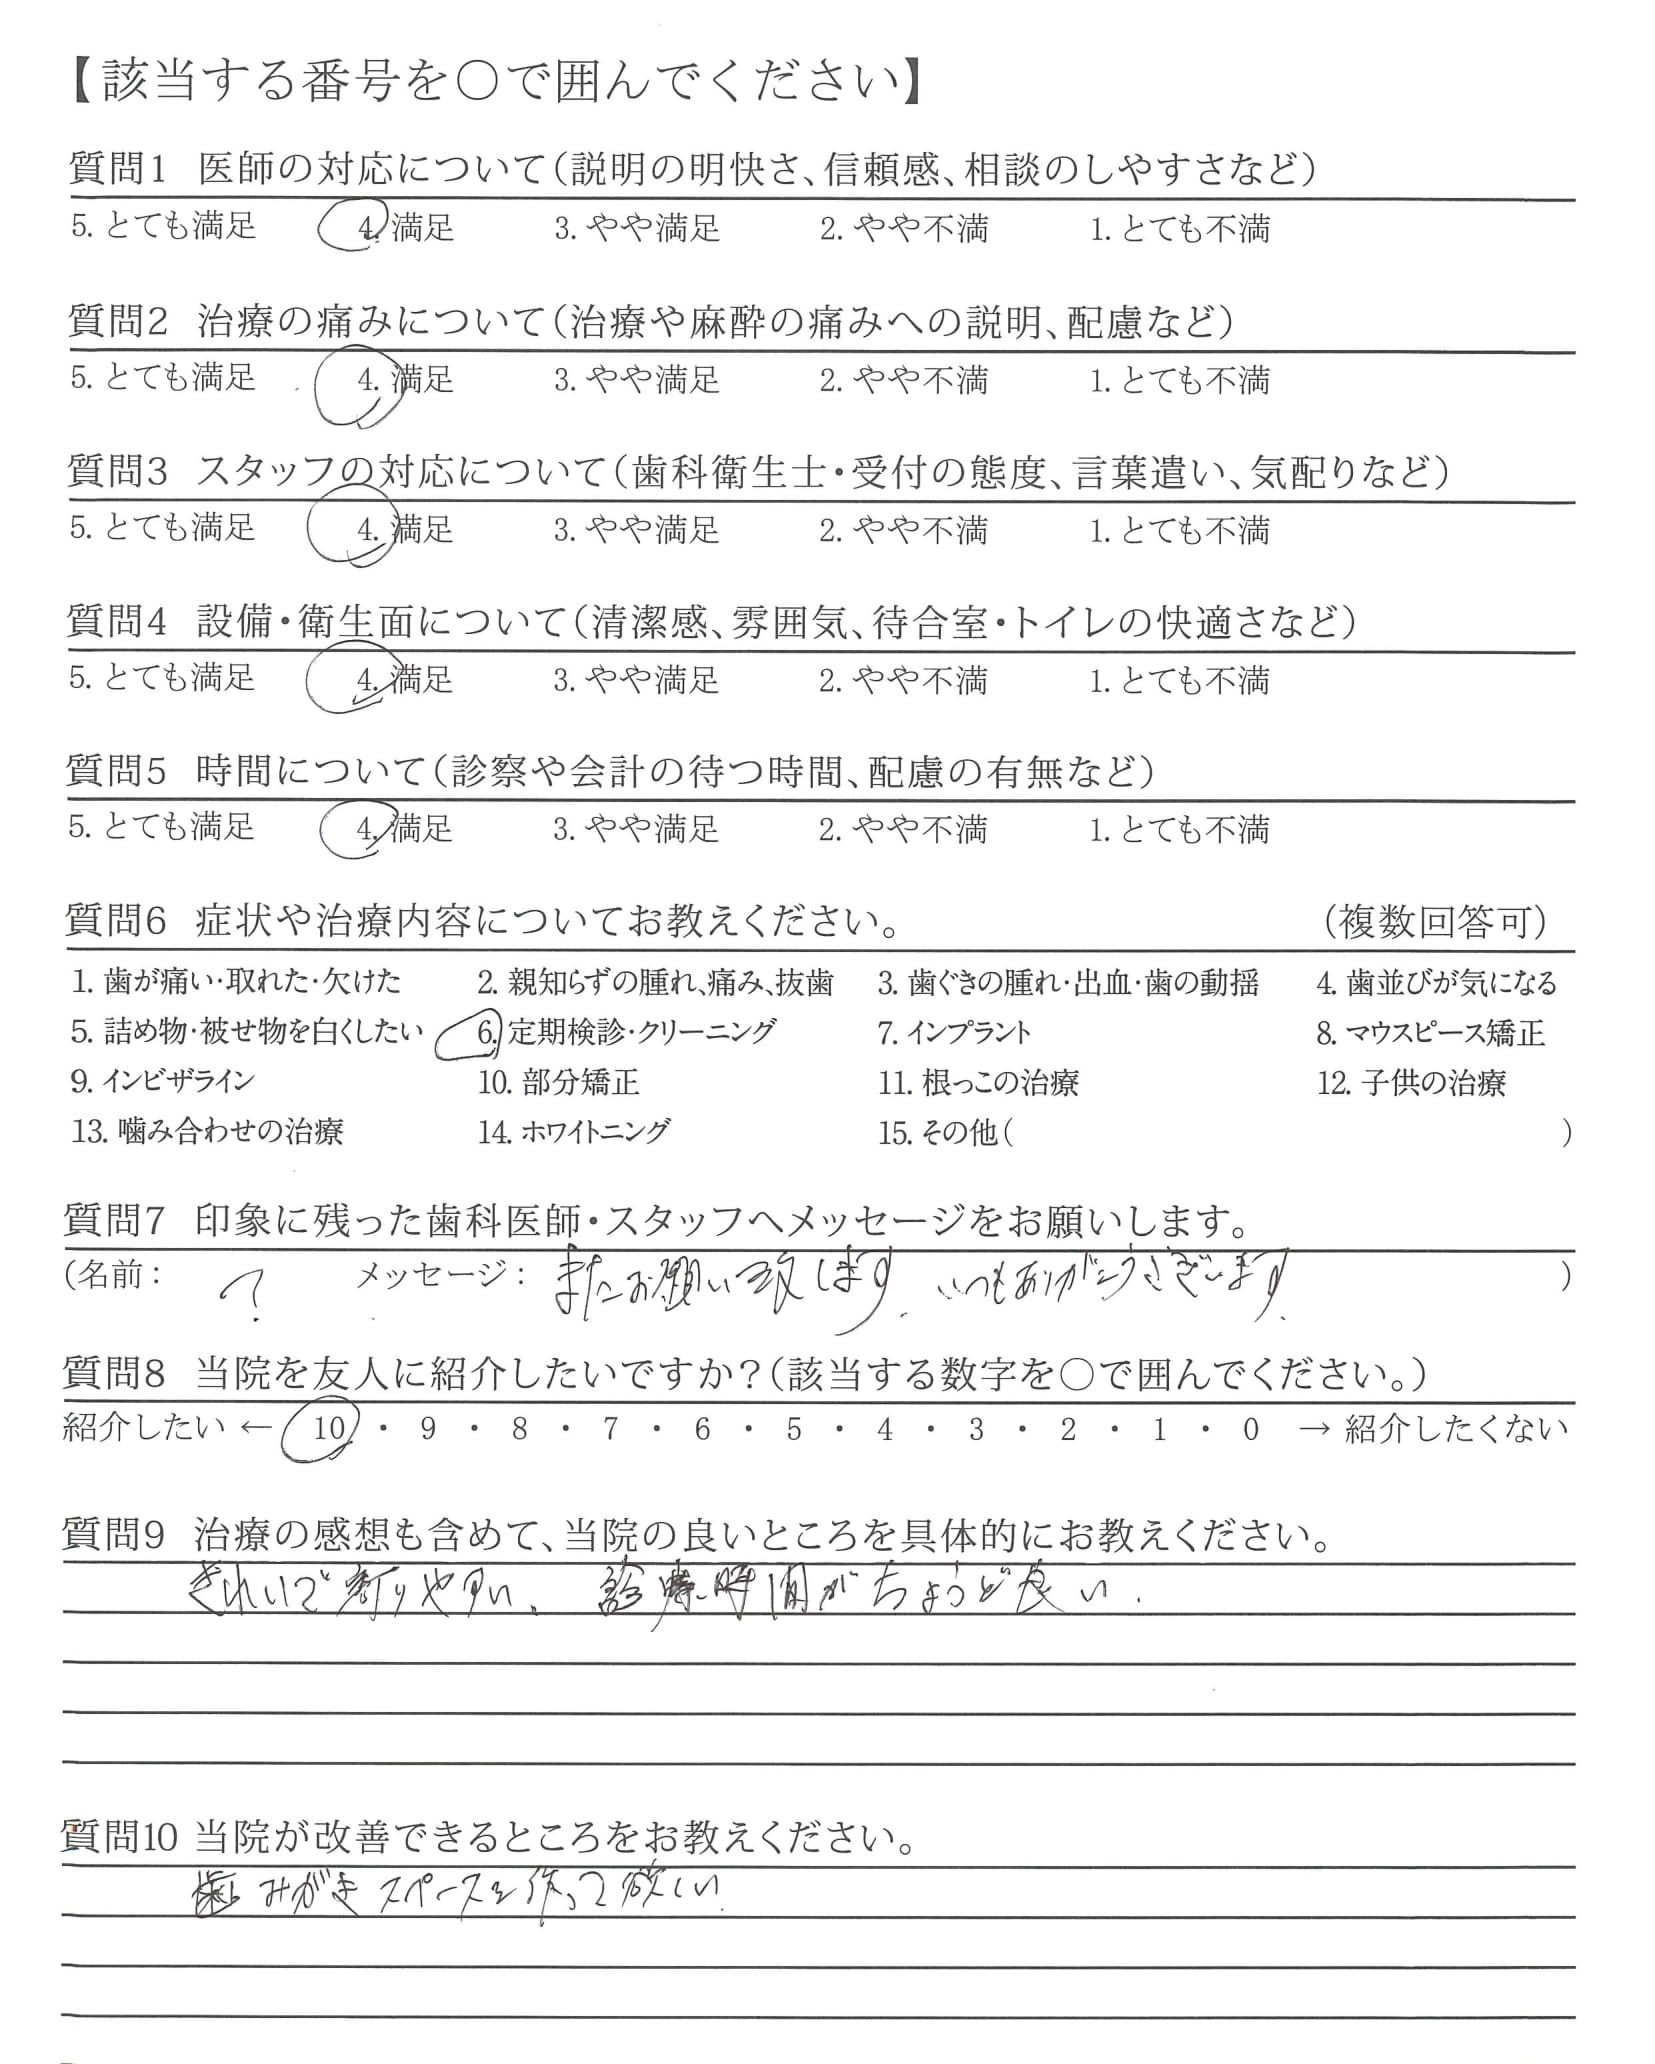 【該当する番号を〇で囲んでください】
質問1 医師の対応について(説明の明快さ、信頼感、相談のしやすさなど)
5. とても満足 4. 満足 3. やや満足 2. やや不満 1. とても不満
質問2 治療の痛みについて(治療や麻酔の痛みへの説明、配慮など)
5. とても満足 4. 満足 3. やや満足 2. やや不満 1. とても不満
質問3 スタッフの対応について(歯科衛生士・受付の態度、言葉遣い、気配りなど)
5. とても満足 4. 満足 3. やや満足 2. やや不満 1. とても不満
質問4 設備・衛生面について(清潔感、雰囲気、待合室・トイレの快適さなど)
5. とても満足 4. 満足 3. やや満足 2. やや不満 1. とても不満
質問5 時間について(診察や会計の待つ時間、配慮の有無など)
5. とても満足 4. 満足 3. やや満足 2. やや不満 1. とても不満
質問6 症状や治療内容についてお教えください。 (複数回答可)
1. 歯が痛い・取れた・欠けた 2. 親知らずの腫れ、痛み、抜歯 3. 歯ぐきの腫れ・出血・歯の動揺 4. 歯並びが気になる
5. 詰め物・被せ物を白くしたい 6. 定期検診・クリーニング 7. インプラント 8. マウスピース矯正
9. インビザライン 10. 部分矯正 11. 根っこの治療 12. 子供の治療
13. 噛み合わせの治療 14. ホワイトニング 15. その他( )
質問7 印象に残った歯科医師・スタッフへメッセージをお願いします。
(名前: ? メッセージ: またお願い致します. いつもありがとうございます. )
質問8 当院を友人に紹介したいですか?(該当する数字を〇で囲んでください。)
紹介したい ← 10 ・ 9 ・ 8 ・ 7 ・ 6 ・ 5 ・ 4 ・ 3 ・ 2 ・ 1 ・ 0 → 紹介したくない
質問9 治療の感想も含めて、当院の良いところを具体的にお教えください。
きれいで やすい、 診療時間がちょうど良い.
質問10 当院が改善できるところをお教えください。
歯みがきスペースを作って欲しい.